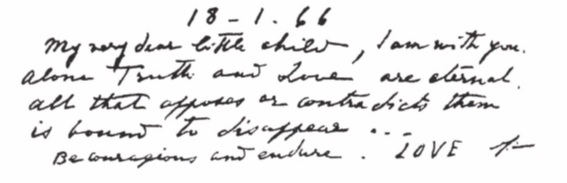 18-1.66
My very dear little child, I am with you.
Alone Truth and Love are eternal.
All that opposes or contradicts them
is bound to disappear ...
Be courageous and endure. LOVE